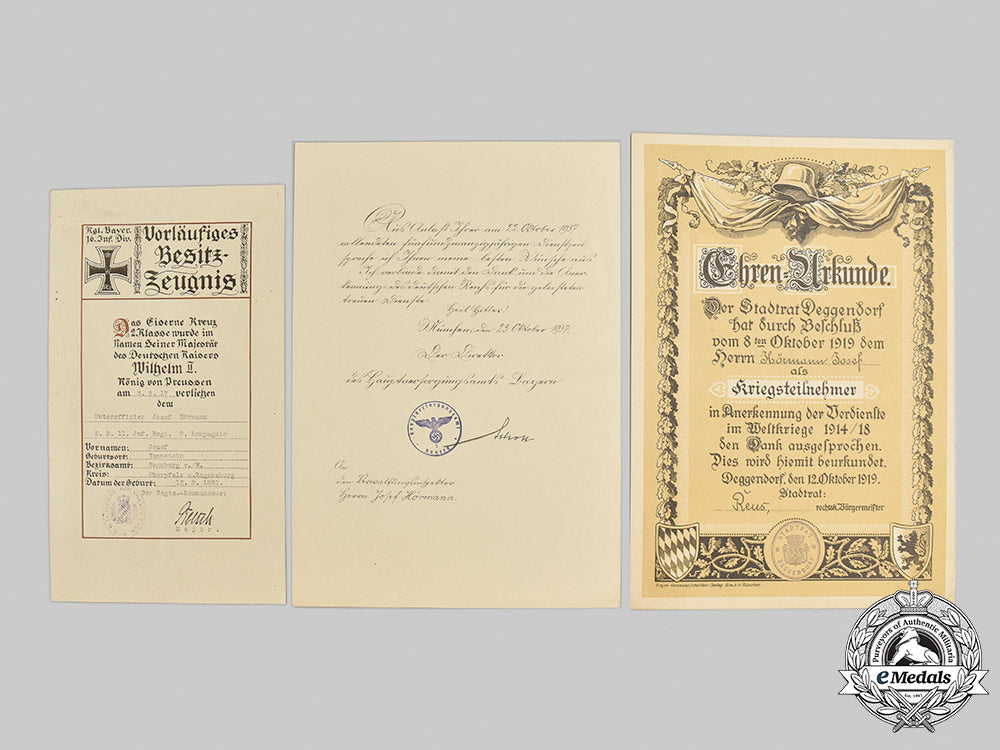 Kgl. Bayer.
16. Inf. Div.
Vorläufiges
Besitz-
Zeugnis
Das Eiserne Kreuz
2.Klasse wurde im
Namen Seiner Majestät
des Deutschen Kaisers
Wilhelm II.
König von Preussen
am verliehen
dem
Unteroffizier Josef Hörmann
K. B. 11. Inf. Regt. 8. Kompagnie
Vornamen: Josef
Geburtsort:
Bezirksamt:
Kreis: Oberpfalz u. Regensburg
Datum der Geburt:
Der Regts.-Kommandeur:
Major.
Aus Anlaß Ihrer am 22. Oktober 1937
vollendeten fünfundzwanzigjährigen Dienstzeit
spreche ich Ihnen meine besten Wünsche aus.
Ich verbinde damit den Dank und die Aner-
kennung des deutschen Reichs für die geleisteten
treuen Dienste.
Heil Hitler!
München, den 23. Oktober 1937.
Der Direktor
des Hauptversorgungsamts Bayern
An
den Verwaltungsinspektor
Herrn Josef Hörmann.
Ehren-Urkunde.
Der Stadtrat Deggendorf
hat durch Beschluß
vom 8ten Oktober 1919 dem
Herrn Hörmann Josef
als
Kriegsteilnehmer
in Anerkennung der Verdienste
im Weltkriege 1914/18
den Dank ausgesprochen.
Dies wird hiemit beurkundet.
Deggendorf, den 12.Oktober 1919.
Stadtrat:
Reus, rechtsk. Bürgermeister
STADTRAT
DEGGENDORF
Purveyors of Authentic Militaria
eMedals
Est. 1967